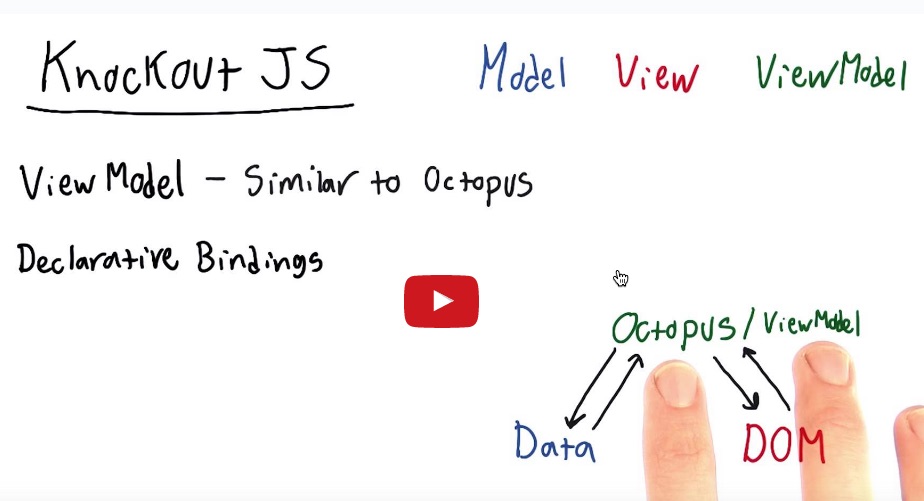 Knockout JS
Model View ViewModel
ViewModel - Similar to Octopus
Declarative Bindings
Octopus/ViewModel
Data DOM